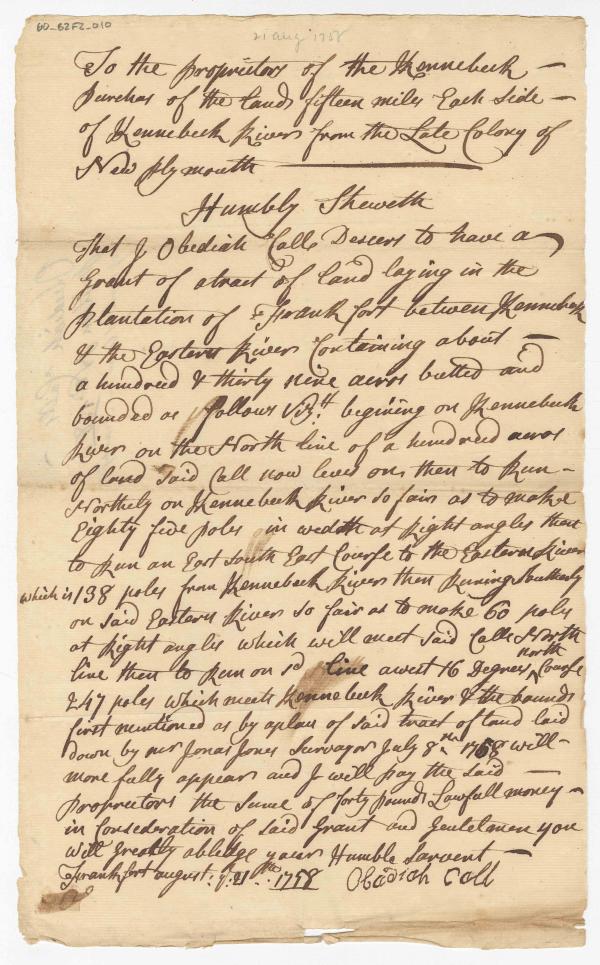 60_62F2_010
21 aug 1758
To the Proprietors of the Kennebeck -
Purchas of the Lands fifteen miles Each Side -
of Kennebeck River from the Late Colony of
New Plymouth
Humbly Sheweth
That I Obediah Call Desiers to have a
Grant of a tract of Land laying in the
Plantation of Frankfort betwen Kennebeck
& the Eastern River Containing about -
a hundred & thirty nine acros butted and
bounded as follows Vizt. begining on Kennebeck
River on the North line of a hundred acros
of land Said Call now leves on, then to Run -
Northely on Kennebeck River so fair as to make
Eighty five Poles in wedth at Right angles then
to Run an East South East Course to the Eastern River
which is 138 poles from Kennebeck River then Runing Southerly
on said Eastern River so fair as to make 60 poles
at Right angles which will meet said Calls North
line then to Run on sd line a west 16 Degrees north Course
247 poles which meets Kennebeck River & the bounds
first mentioned as by a plan of said tract of land laid
down by mr Jonas Jones Survayor July 8th 1758 will -
more fully appear and I will pay the said -
Proprietors the Sume of forty pounds Lawfull money -
in Consideration of said Grant and Gentelmen you
will Greatly abledge your Humble Sarvent -
Frankfort august ye 21th 1758 Obadiah Call